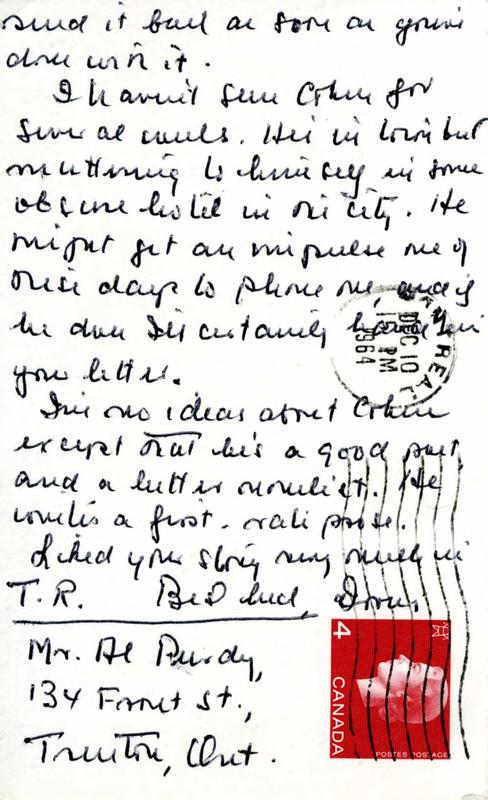 send it back as soon as you're
done with it.
I haven't seen Cohen for
several weeks. He's in town but
muttering to himself in some
obscure hotel in the city. He
might get an impulse one of
these days to phone me and if
he does I'll certainly have him
your letter.
I've no ideas about Cohen
except that he's a good poet
and a better novelist. He
writes a first-rate prose.
Liked your story very much in
T.R. Best luck, Irving
Mr. Al Purdy,
134 Front St.,
Trenton, Ont.
MONTREAL
DEC 10
PM
1964
4
CANADA
POSTES POSTAGE